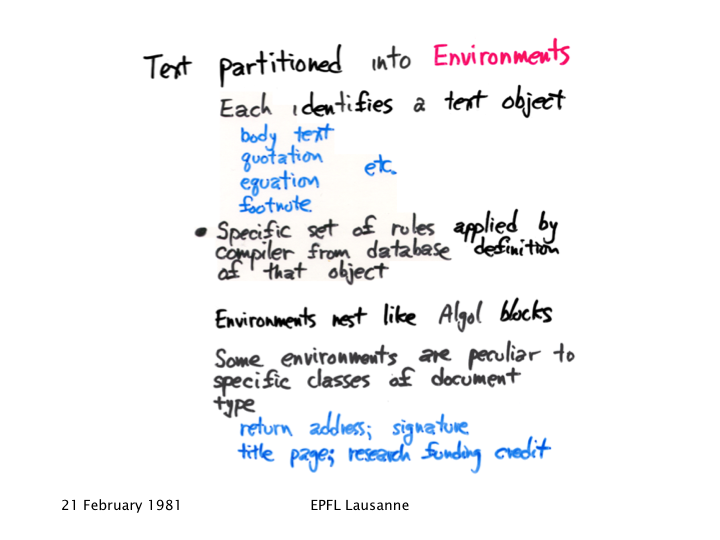 Text partitioned into Environments
Each identifies a text object
body text
quotation etc.
equation
footnote
• Specific set of rules applied by
compiler from database definition
of that object
Environments nest like Algol blocks
Some environments are peculiar to
specific classes of document
type
return address; signature
title page; research funding credit
21 February 1981 EPFL Lausanne